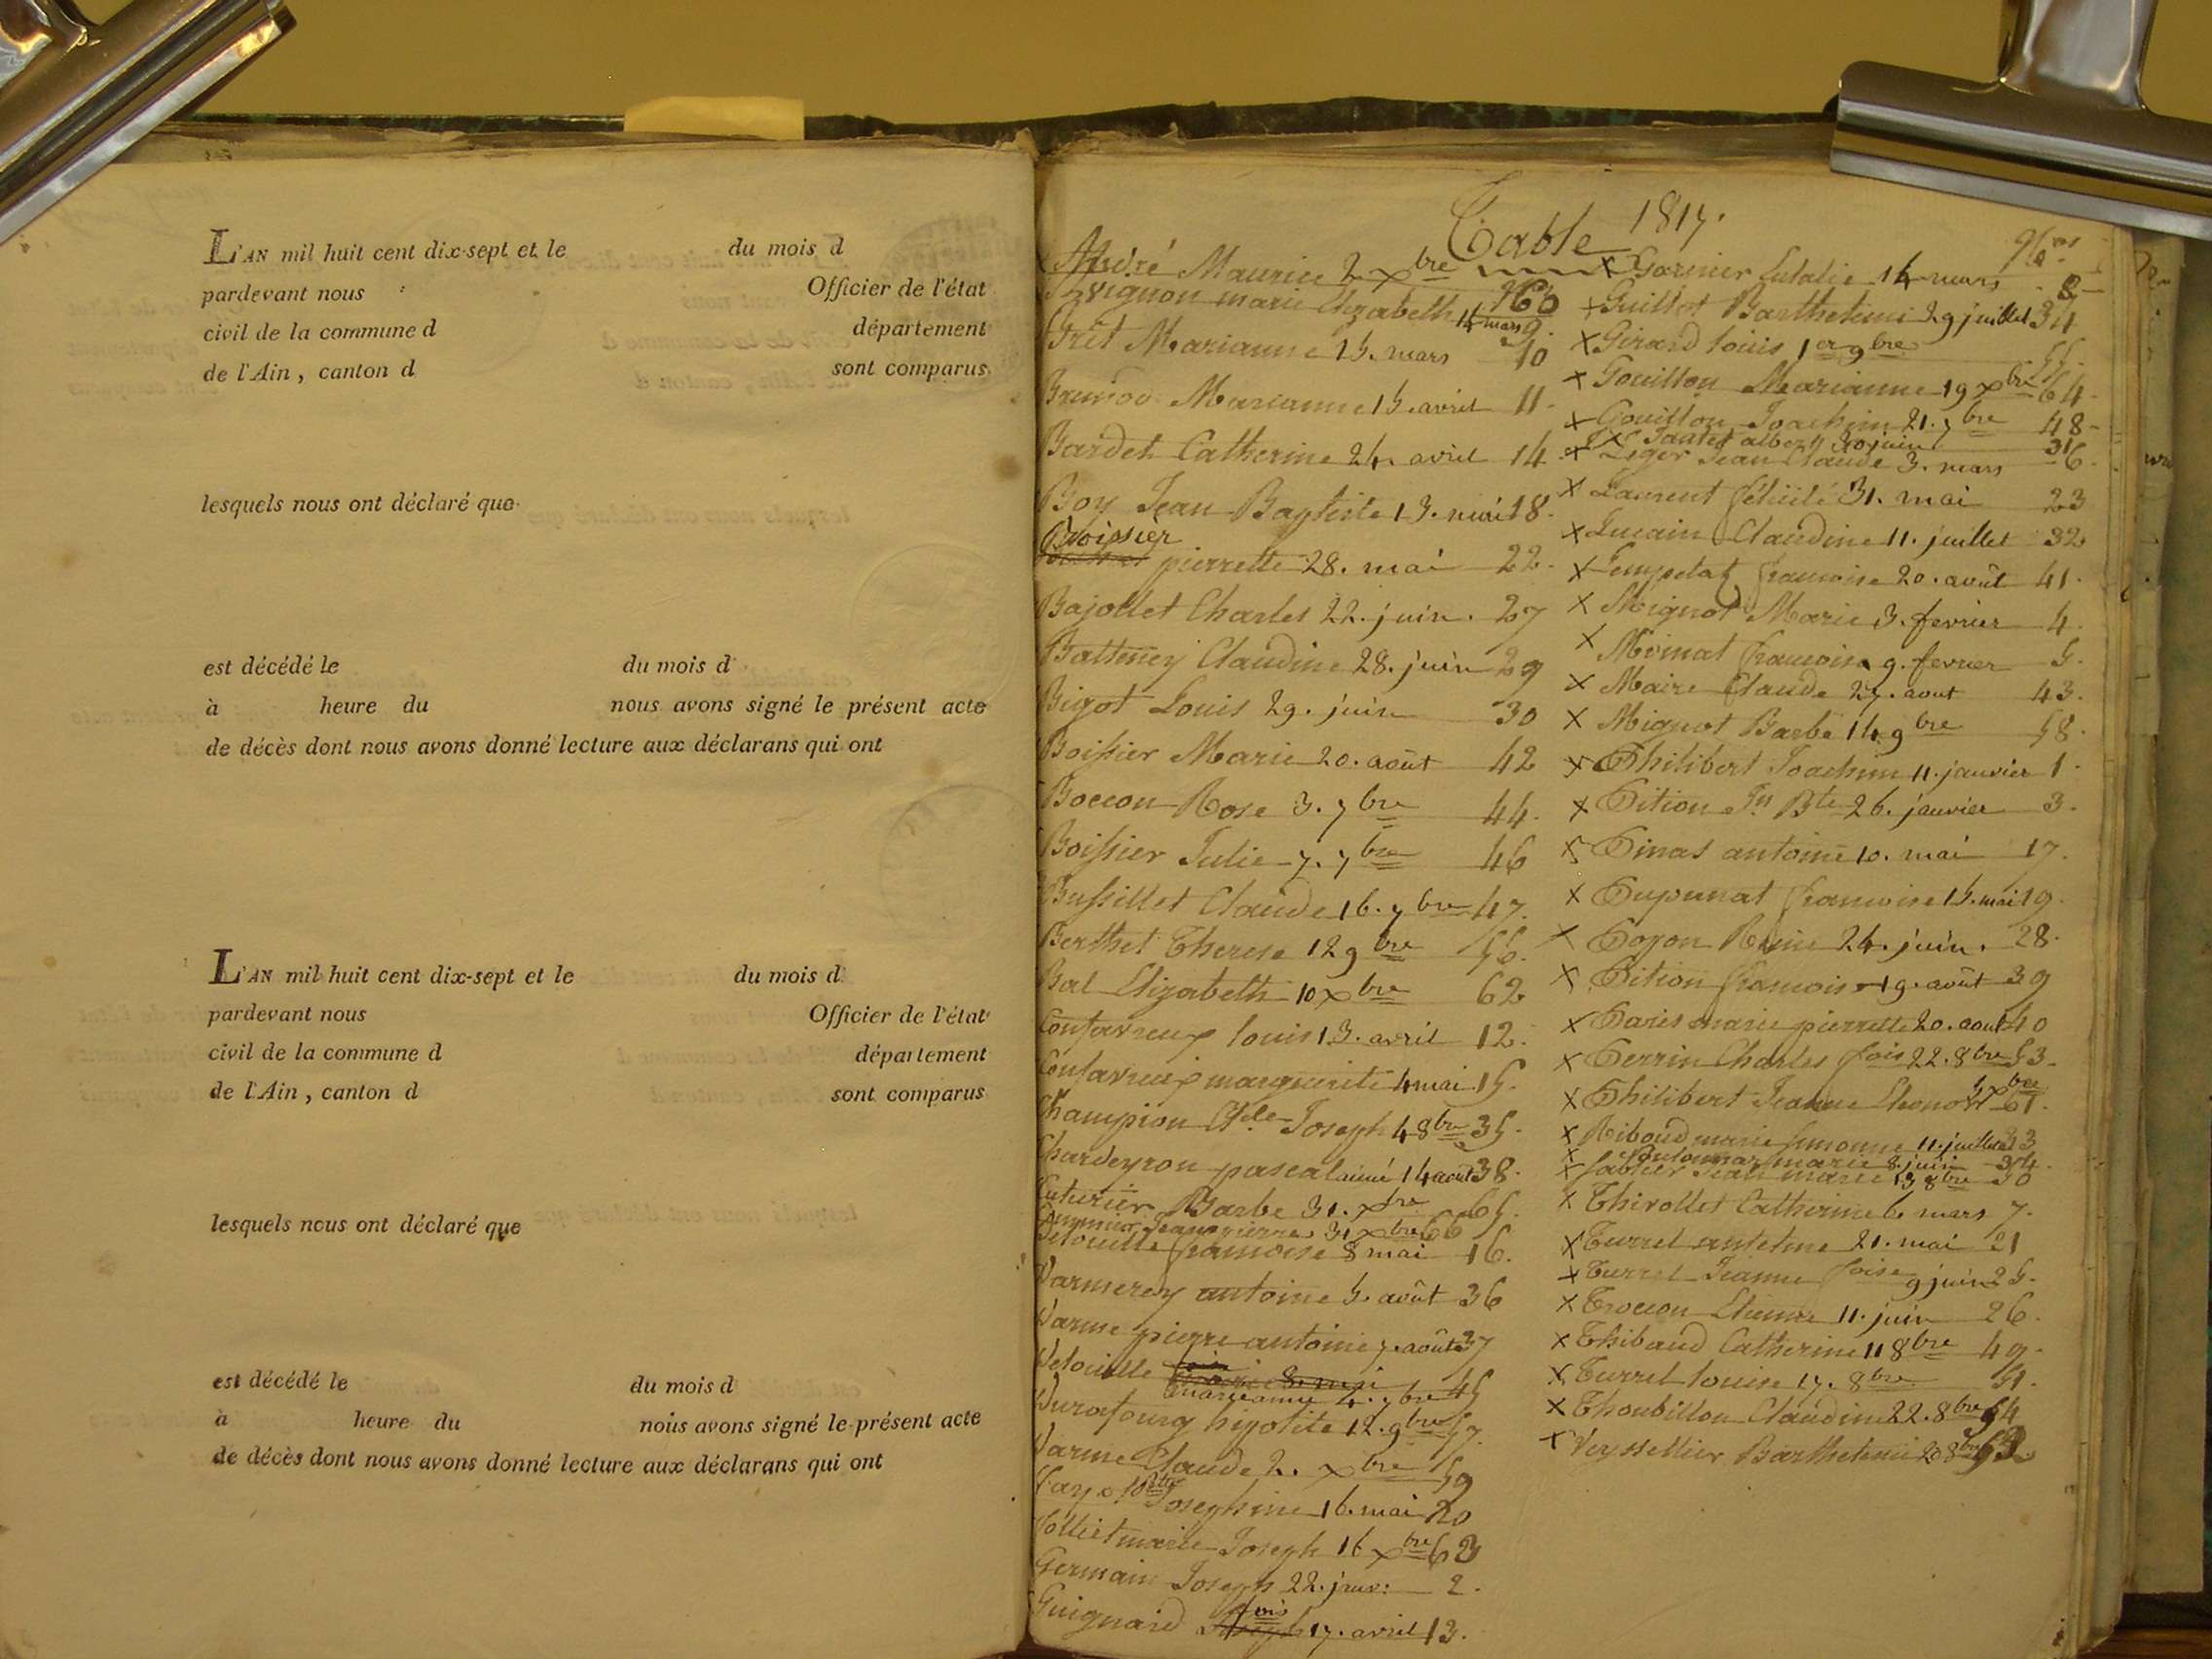 L'AN mil huit cent dix-sept et le du mois d
pardevant nous Officier de l'état
civil de la commune d département
de l'Ain, canton d sont comparus
lesquels nous ont déclaré que
est décédé le du mois d
à heure du nous avons signé le présent acte
de décès dont nous avons donné lecture aux déclarans qui ont
L'AN mil huit cent dix-sept et le du mois d
pardevant nous Officier de l'état
civil de la commune d département
de l'Ain, canton d sont comparus
lesquels nous ont déclaré que
est décédé le du mois d
à heure du nous avons signé le présent acte
de décès dont nous avons donné lecture aux déclarans qui ont
Table 1817.
André Maurice 2 xbre 60
Avignon marie Elizabeth 14 mars 9.
Marianne 15. mars 10
Marianne 15. avril 11.
Bardet Catherine 24. avril 14
Boy Jean Baptiste 13. mai 18.
Boissier
pierrette 28. mai 22.
Bajollet Charles 22. juin. 27
Batteney Claudine 28. juin 29
Bigot Louis 29. juin 30
Boissier Marie 20. août 42
Boccon Rose 3. 7bre 44.
Boissier Julie 7. 7bre 46
Bussillet Claude 16. 7bre 47.
Berthet Therese 12 9bre 56.
Bal Elizabeth 10 xbre 62
Convavreux louis 13. avril 12.
Convavreux marguerite 4 mai 15.
Champion Joseph 4 8bre 35.
Chardeyron pascal aimé 14 août 38.
Cuturier Barbe 31. xbre 65.
Jean pierre 31 xbre 66
Delouille francoise 8 mai 16.
Darmerey antoine 5. août 36
Darme pierre antoine 7. août 37
Delouille
marianne 4. 7bre 45
Durafourg hipolite 12. 9bre 57.
Darme Claude 2. xbre 59
Josephine 16. mai 20
Folliet marie Joseph 16 xbre 63
Germain Joseph 22. janv: 2.
Guignard fois 17. avril 13.
x Garnier Eulalie 14 mars 8
x Guillot Barthelemi 29 juillet 34
x Girard louis 1er 9bre 55.
x Gouillon Marianne 19 xbre 64.
x Gouillon Joachim 21. 7bre 48
30 juin 31
x Leger Jean Claude 3. mars 6.
x Laurent félicité 31. mai 23
x Lucain Claudine 11. juillet 32
x Lempelat francoise 20. août 41.
x Mignot Marie 3. fevrier 4.
x Moinat francoise 9. fevrier 5.
x Maire Claude 27. aout 43.
x Mignot Barbe 14 9bre 58.
x Philibert Joachim 11. janvier 1.
x Pition Jn Bte 26. janvier 3.
x Pinas antoine 10. mai 17.
x Pupunat francoise 15. mai 19.
x Poyon 24. juin. 28.
x Pition francoise 19. août 39
x Paris marie pierrette 20. aout 40
x Perrin Charles fois 22. 8bre 53.
x Philibert Jeanne Eleonore 5 xbre 61.
x Riboud marie simonne 11. juillet 33
x marie 8. juin 24.
x Sablier Jean marie 13 8bre 50
x Thirollet Catherine 6 mars 7.
x Turrel antelme 21. mai 21
x Turrel Jeanne foise 9 juin 25.
x Troccon Etienne 11. juin 26.
x Thibaud Catherine 11 8bre 49.
x Turrel louise 17. 8bre 51.
x Thoubillon Claudine 22. 8bre 54
x Veyssellier Barthelemi 20 8bre 52